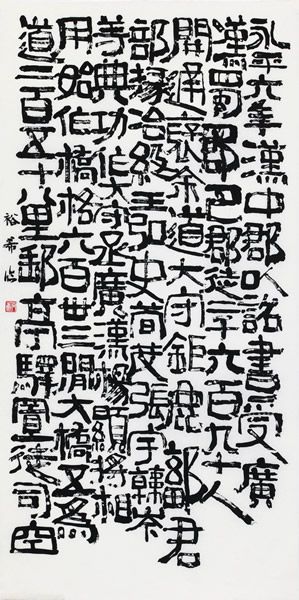 永平六年漢中郡以詔書受廣
漢蜀郡巴郡徒二千六百九十人
開通褒余道太守鉅鹿鄐君
部掾治級王弘史荀茂張宇韓岑
等典功作太守丞廣漢楊顯將相
用始作橋格六百卅三間大橋五為
道二百五十八里郵亭驛置徒司空
裕希臨